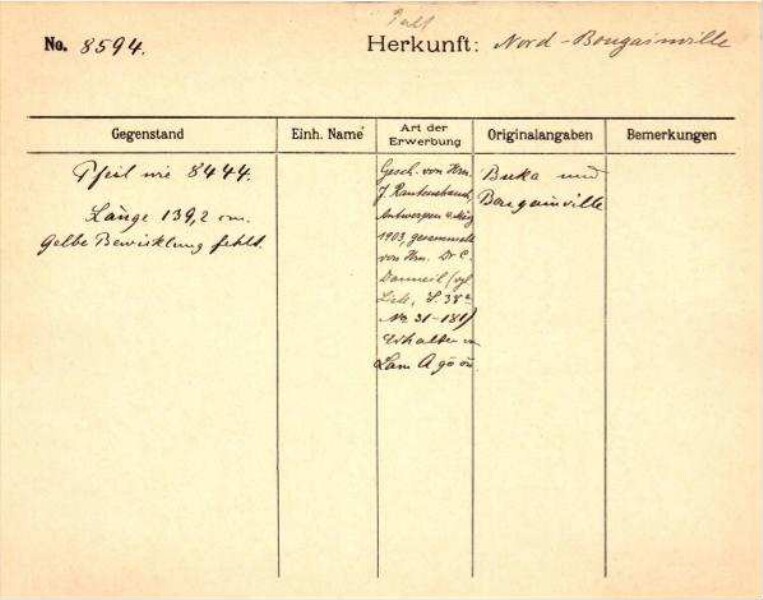 No. 8594.
Herkunft: Nord-Bougainville
Gegenstand
Einh. Name
Art der Erwerbung
Originalangaben
Bemerkungen
Pfeil wie 8444.
Länge 139,2 cm.
Gelbe Bewicklung fehlt.
Gesch. von Hrn.
J. Rautenstrauch,
Antwerpen
1903, gesammelt
von Hrn. Dr C.
Danneil (vgl
Liste, S. 38
No 31-181)
Erhalten
Buka und
Bougainville